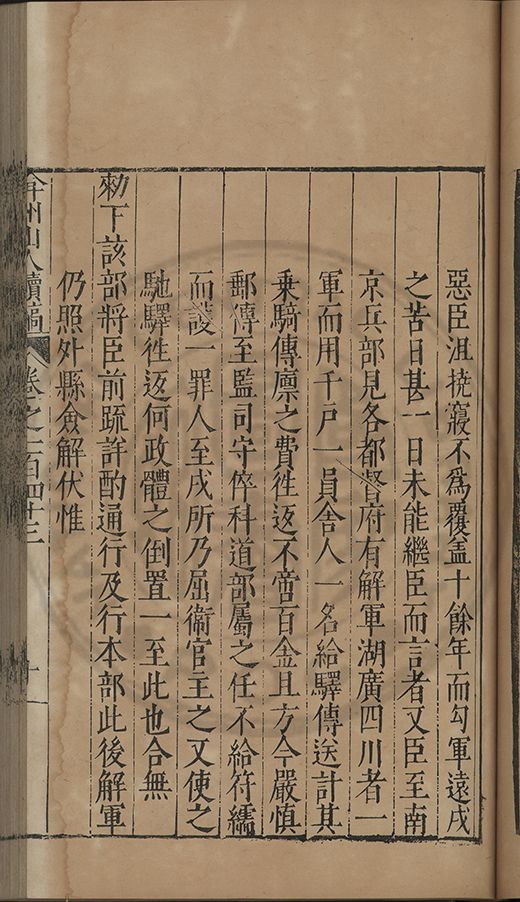 惡臣沮撓寢不爲覆盖十餘年而勾軍遠戍
之苦日甚一日未能繼臣而言者又臣至南
京兵部見各都督府有解軍湖廣四川者一
軍而用千戸一員舍人一名給驛傳送計其
乗騎傳廪之費徃返不啻百金且方今嚴慎
郵傳至監司守倅科道部屬之任不給符繻
而護一罪人至戌所乃屈衛官主之又使之
馳驛徃返何政體之倒置一至此也合無
勑下該部將臣前疏詳酌通行及行本部此後解軍
仍照外縣僉解伏惟
弇州山人續稿 卷之一百四十三 十一